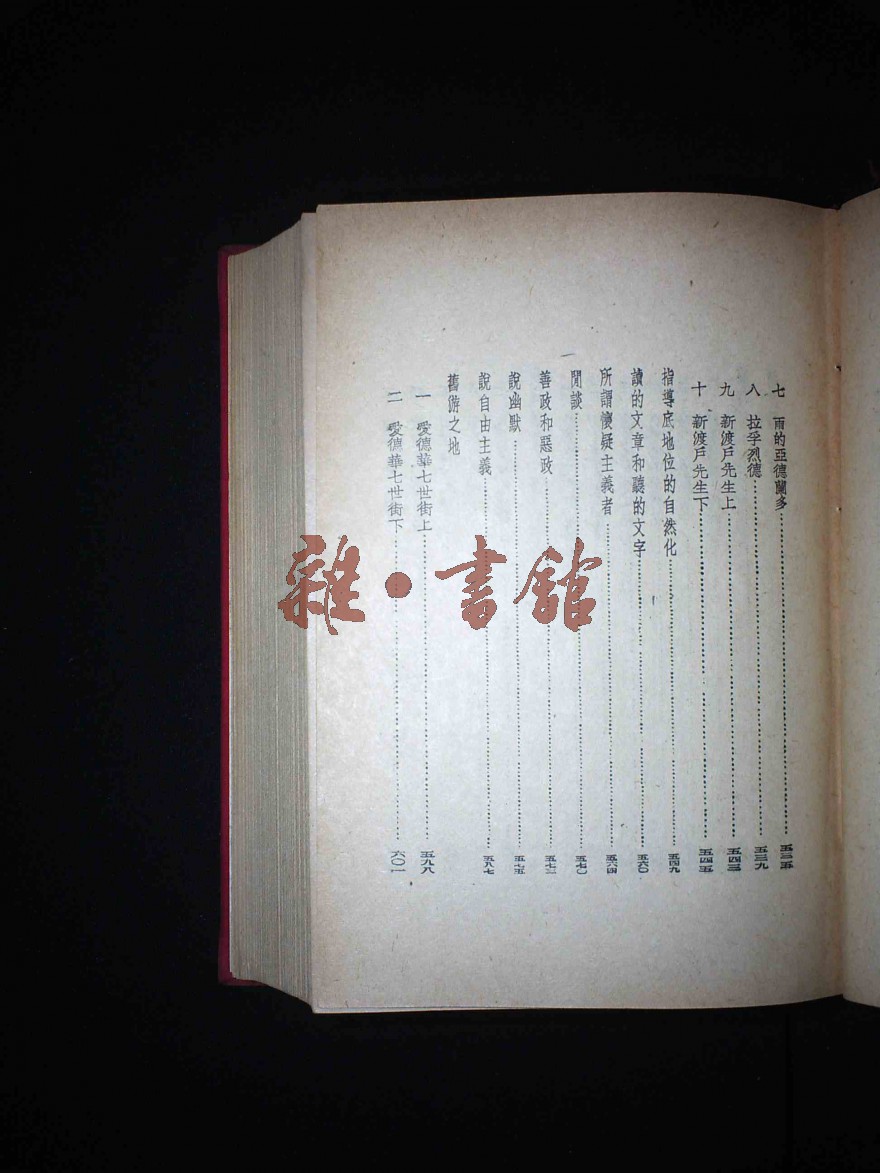 七 雨的亞德蘭多 五三五
八 拉孚烈德 五三九
九 新渡戶先生上 五四三
十 新渡戶先生下 五四五
指導底地位的自然化 五四九
讀的文章和聽的文字 五六〇
所謂懷疑主義者 五六四
閒談 五七〇
善政和惡政 五七二
說幽默 五七五
說自由主義 五八七
舊游之地
一 愛德華七世街上 五九八
二 愛德華七世街下 六〇一
雜·書館